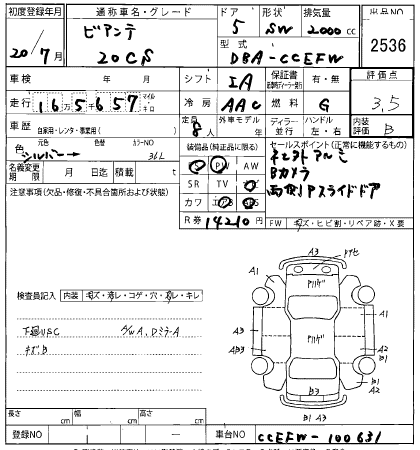 初度登録年月 通称車名・グレード ドア 形状 排気量 出品NO
20年7月 ビアンテ 20CS 5 SW 2000cc 2536
型式 DBA-CCEFW
車検 年 月 シフト IA 保証書 有・無 評価点
走行 165657 マイル キロ 冷房 AAC 燃料 G 3.5
車歴 自家用・レンタ・事業用( ) 定員 8人 外車モデル 年 ディーラー 並行 ハンドル 左・右 内装評価 B
色 元色 色替 カラーNO シルバー 36L
装備品(純正品に限る) セールスポイント(正常に機能するもの)
PS PW AW
名義変更期限 月 日迄 積載 t
SR TV
カワ エアB
R券 14210円
Bカメラ
両側Pスライドドア
注意事項(欠品・修復・不具合箇所および状態)
FW キズ・ヒビ割・リペア跡・X要
検査員記入 内装 キズ・汚レ・コゲ・穴・切レ
下廻りSC
A3
A1 A1
A3 A3
AB3 A2
B1
A2 B1
B3
B1 A3
長さ cm 幅 cm 高さ cm
登録NO 車台NO CCEFW-100631